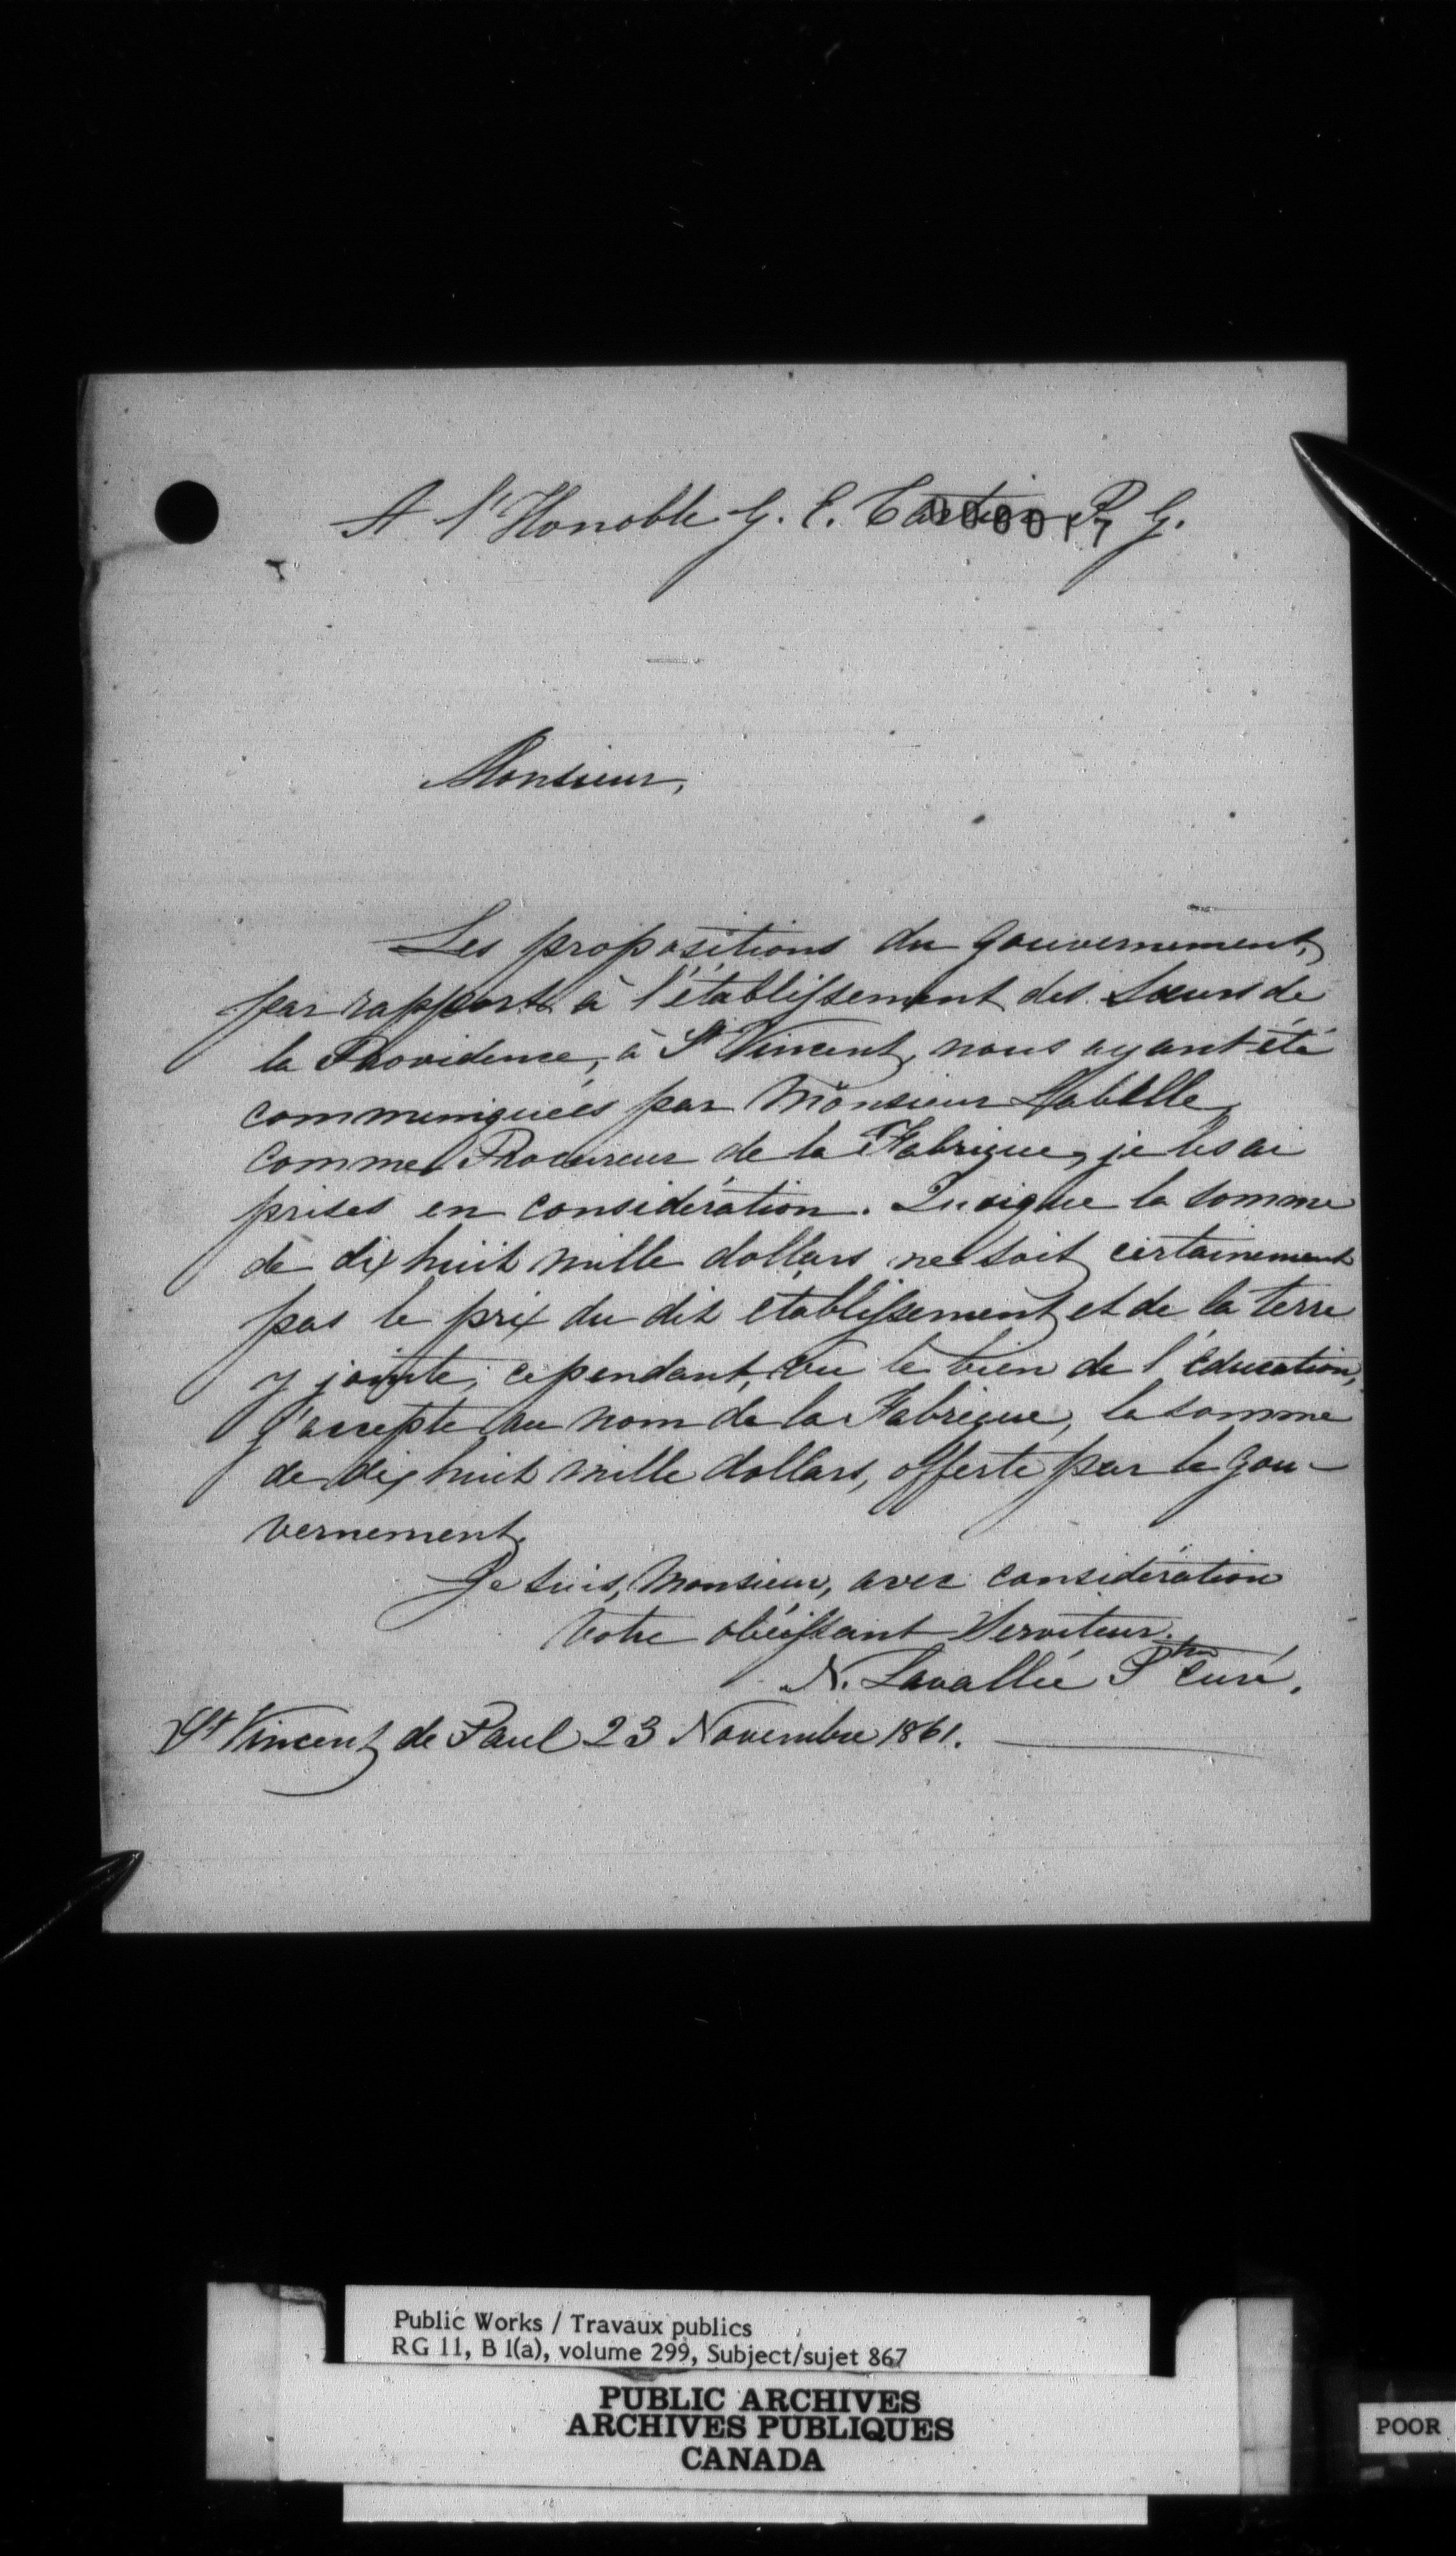 A l'Honoble G. E. Cartier P. G.
000017
Monsieur,
Les propositions du gouvernement,
par rapport à l'établissement des Sœurs de
la Providence, à St Vincent, nous ayant été
communiquées par Monsieur Labelle,
comme Procureur de la Fabrique, je les ai
prises en considération. Quoique la somme
de dix huit mille dollars ne soit certainement
pas le prix du dit établissement et de la terre
y jointe, cependant, vu le bien de l'éducation,
j'accepte au nom de la Fabrique, la somme
de dix huit mille dollars, offerte par le gou-
vernement.
Je suis, Monsieur, avec considération
Votre obéissant Serviteur.
N. Lavallée Ptre Curé.
St Vincent de Paul 23 Novembre 1861.
Public Works / Travaux publics
RG 11, B 1(a), volume 299, Subject/sujet 867
PUBLIC ARCHIVES
ARCHIVES PUBLIQUES
CANADA
POOR